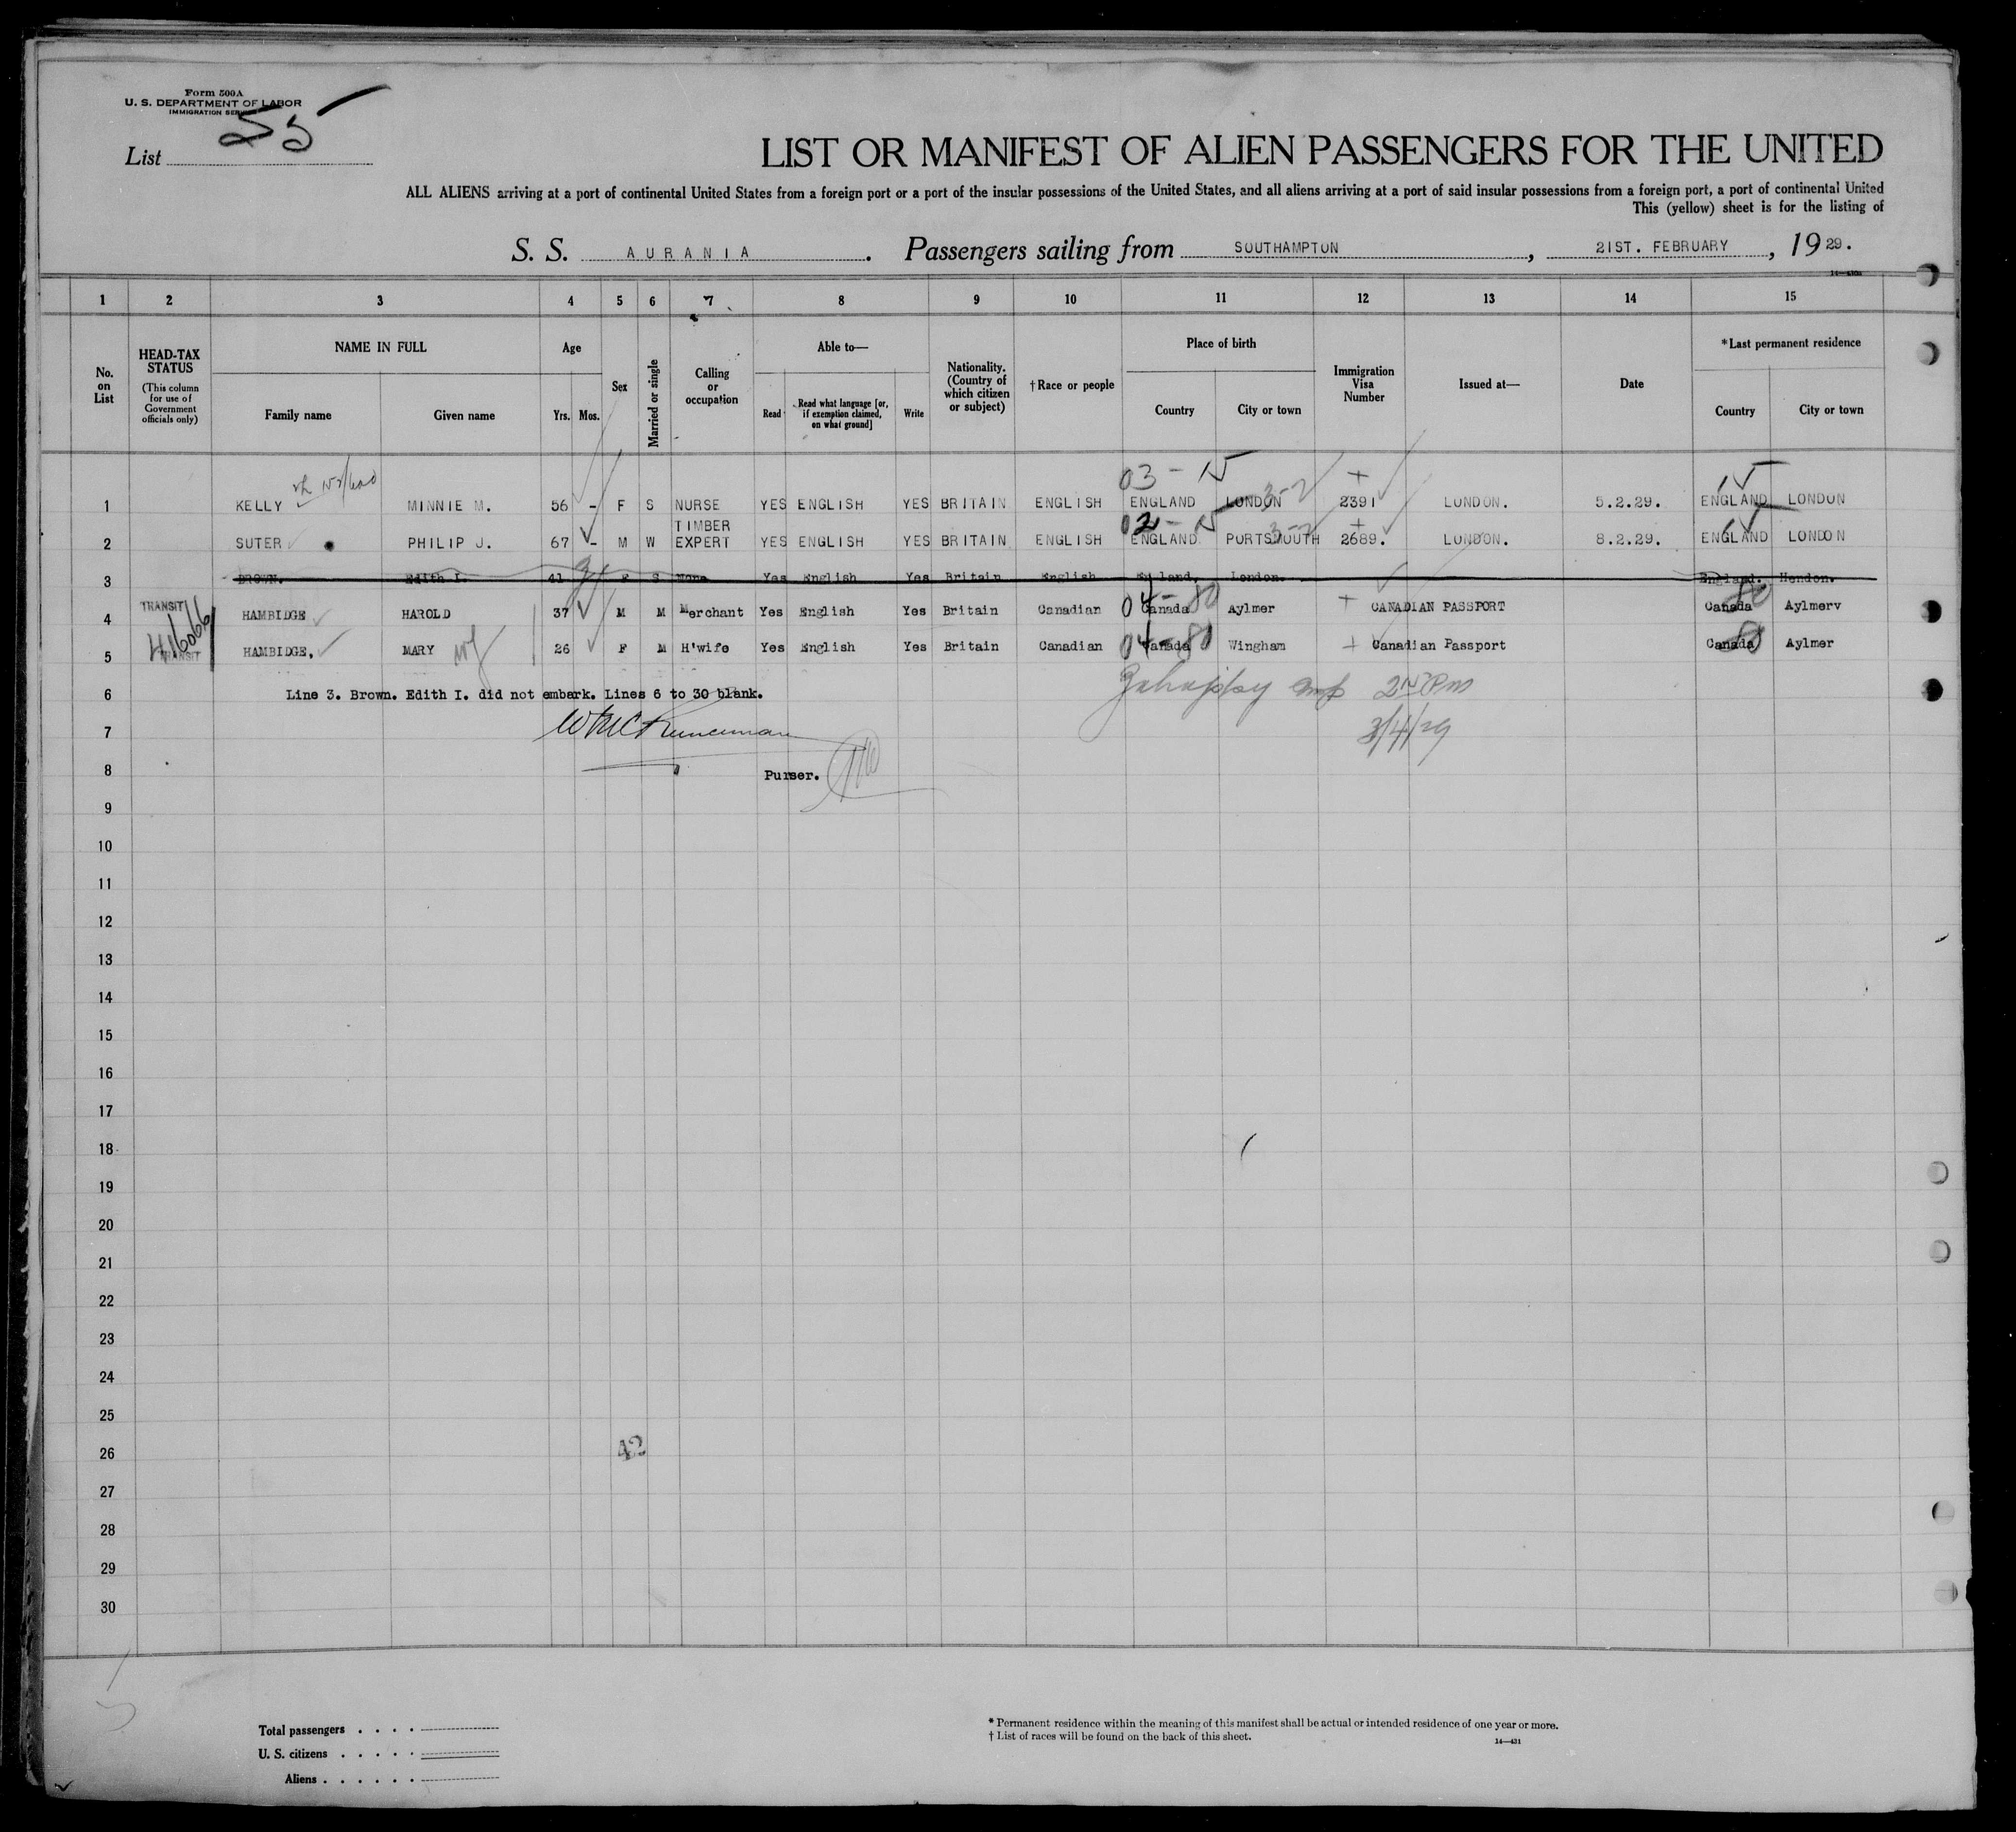 Form 500A
U. S. DEPARTMENT OF LABOR
IMMIGRATION
List 55
LIST OR MANIFEST OF ALIEN PASSENGERS FOR THE UNITED
ALL ALIENS arriving at a port of continental United States from a foreign port or a port of the insular possessions of the United States, and all aliens arriving at a port of said insular possessions from a foreign port, a port of continental United
This (yellow) sheet is for the listing of
S. S. AURANIA. Passengers sailing from SOUTHAMPTON, 21ST. FEBRUARY, 1929.
1 2 3 4 5 6 7 8 9 10 11 12 13 14 15
No. on List
HEAD-TAX STATUS
(This column for use of Government officials only)
NAME IN FULL
Family name
Given name
Age
Yrs. Mos.
Sex
Married or single
Calling or occupation
Able to—
Read
Read what language [or, if exemption claimed, on what ground]
Write
Nationality. (Country of which citizen or subject)
†Race or people
Place of birth
Country
City or town
Immigration Visa Number
Issued at—
Date
*Last permanent residence
Country
City or town
03 -
1 KELLY MINNIE M. 56 - F S NURSE YES ENGLISH YES BRITAIN ENGLISH ENGLAND LONDON 2391 LONDON. 5.2.29. ENGLAND LONDON
02 -
2 SUTER PHILIP J. 67 - M W TIMBER EXPERT YES ENGLISH YES BRITAIN ENGLISH ENGLAND. PORTSMOUTH 2689. LONDON. 8.2.29. ENGLAND LONDON
3 BROWN. Edith I. 41 F S None Yes English Yes Britain English England. London. England. Hendon.
4 TRANSIT HAMBIDGE HAROLD 37 M M Merchant Yes English Yes Britain Canadian 04-80 Canada Aylmer CANADIAN PASSPORT Canada 80 Aylmerv
5 TRANSIT HAMBIDGE, MARY 26 F M H'wife Yes English Yes Britain Canadian 04-80 Canada Wingham Canadian Passport Canada 80 Aylmer
6 Line 3. Brown. Edith I. did not embark. Lines 6 to 30 blank.
7 3/4/29
8 Purser.
9
10
11
12
13
14
15
16
17
18
19
20
21
22
23
24
25
26 42
27
28
29
30
Total passengers . . . .
U. S. citizens . . . . .
Aliens . . . . . .
* Permanent residence within the meaning of this manifest shall be actual or intended residence of one year or more.
† List of races will be found on the back of this sheet.
14—431